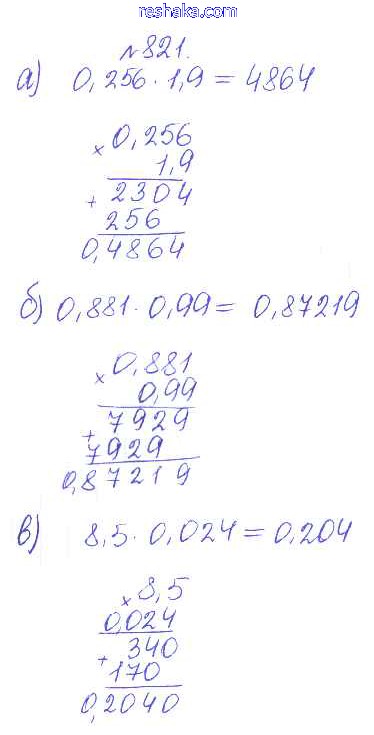 reshaka.com
№821.
а) 0,256 · 1,9 = 4864
× 0,256
1,9
+ 2304
256
0,4864
б) 0,881 · 0,99 = 0,87219
× 0,881
0,99
+ 7929
7929
0,87219
в) 8,5 · 0,024 = 0,204
× 8,5
0,024
+ 340
170
0,2040